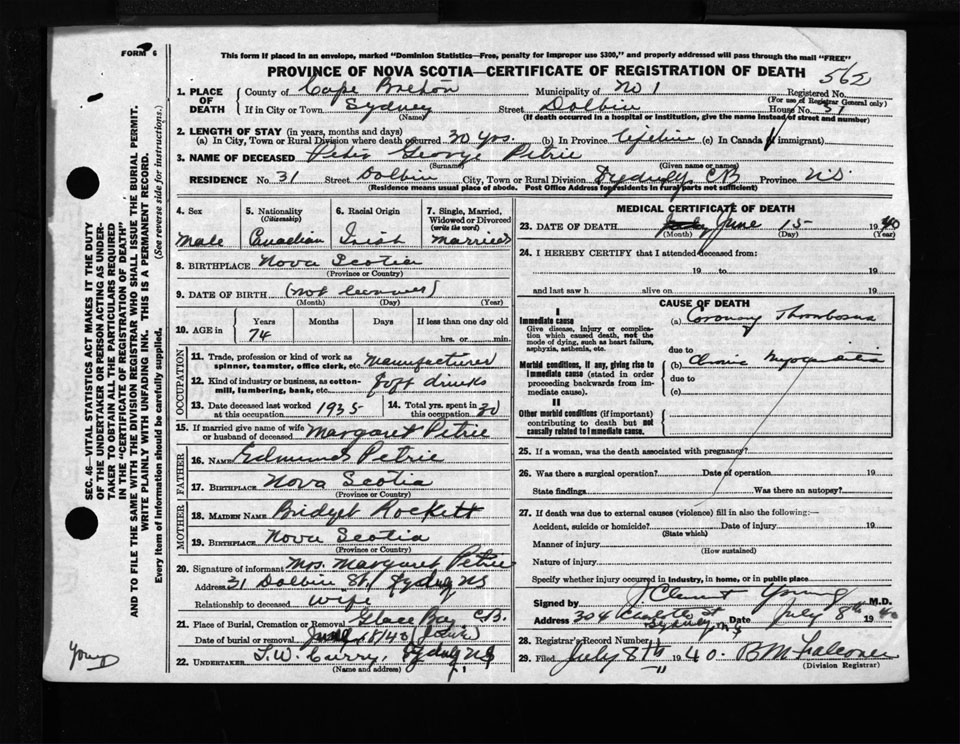 FORM 6
This form if placed in an envelope, marked "Dominion Statistics—Free, penalty for improper use $300," and properly addressed will pass through the mail "FREE"
PROVINCE OF NOVA SCOTIA—CERTIFICATE OF REGISTRATION OF DEATH 562
1. PLACE OF DEATH { County of Cape Breton Municipality of No 1 Registered No.
(For use of Registrar General only)
If in City or Town Sydney Street Dolbin House No. 31
(Name) (If death occurred in a hospital or institution, give the name instead of street and number)
2. LENGTH OF STAY (in years, months and days)
(a) In City, Town or Rural Division where death occurred 30 yrs. (b) In Province Lifetime (c) In Canada (if immigrant)
3. NAME OF DECEASED Peter George Petrie
(Surname) (Given name or names)
RESIDENCE No. 31 Street Dolbin City, Town or Rural Division Sydney CB Province N.S.
(Residence means usual place of abode. Post Office Address for residents in rural parts not sufficient)
4. Sex Male
5. Nationality (Citizenship) Canadian
6. Racial Origin Irish
7. Single, Married, Widowed or Divorced (write the word) Married
8. BIRTHPLACE Nova Scotia
(Province or Country)
9. DATE OF BIRTH (not known)
(Month) (Day) (Year)
10. AGE in { Years Months Days If less than one day old
74 hrs. or min.
OCCUPATION
11. Trade, profession or kind of work as spinner, teamster, office clerk, etc. Manufacturer
12. Kind of industry or business, as cotton-mill, lumbering, bank, etc. Soft drinks
13. Date deceased last worked at this occupation 1935
14. Total yrs. spent in this occupation 30
15. If married give name of wife or husband of deceased Margaret Petrie
FATHER
16. NAME Edmund Petrie
17. BIRTHPLACE Nova Scotia
(Province or Country)
MOTHER
18. MAIDEN NAME Bridget Rockett
19. BIRTHPLACE Nova Scotia
(Province or Country)
20. Signature of informant Mrs. Margaret Petrie
Address 31 Dolbin St. Sydney NS
Relationship to deceased wife
21. Place of Burial, Cremation or Removal Glace Bay C.B.
Date of burial or removal June 18/40
22. UNDERTAKER T.W. Curry, Sydney NS
(Name and address)
MEDICAL CERTIFICATE OF DEATH
23. DATE OF DEATH June 15 1940
(Month) (Day) (Year)
24. I HEREBY CERTIFY that I attended deceased from:
19 to 19
and last saw h alive on 19
CAUSE OF DEATH
I
Immediate cause
Give disease, injury or complication which caused death, not the mode of dying, such as heart failure, asphyxia, asthenia, etc.
(a) Coronary Thrombosis
due to
Morbid conditions, if any, giving rise to immediate cause (stated in order proceeding backwards from immediate cause).
(b) Chronic Myocarditis
due to
(c)
II
Other morbid conditions (if important) contributing to death but not causally related to immediate cause.
25. If a woman, was the death associated with pregnancy?
26. Was there a surgical operation? Date of operation 19
State findings Was there an autopsy?
27. If death was due to external causes (violence) fill in also the following:—
Accident, suicide or homicide? Date of injury 19
(State which)
Manner of injury
(How sustained)
Nature of injury
Specify whether injury occurred in industry, in home, or in public place
Signed by J Clement Young M.D.
Address 304 Charlotte St Sydney, N.S. Date July 8th 1940
28. Registrar's Record Number
29. Filed July 8th 1940. B M Falconer
(Division Registrar)
SEC. 46—VITAL STATISTICS ACT MAKES IT THE DUTY OF THE UNDERTAKER OR PERSON ACTING AS UNDERTAKER TO OBTAIN ALL THE PARTICULARS REQUIRED IN THE "CERTIFICATE OF REGISTRATION OF DEATH" AND TO FILE THE SAME WITH THE DIVISION REGISTRAR WHO SHALL ISSUE THE BURIAL PERMIT.
WRITE PLAINLY WITH UNFADING INK. THIS IS A PERMANENT RECORD.
Every item of information should be carefully supplied. (See reverse side for instructions.)
Young